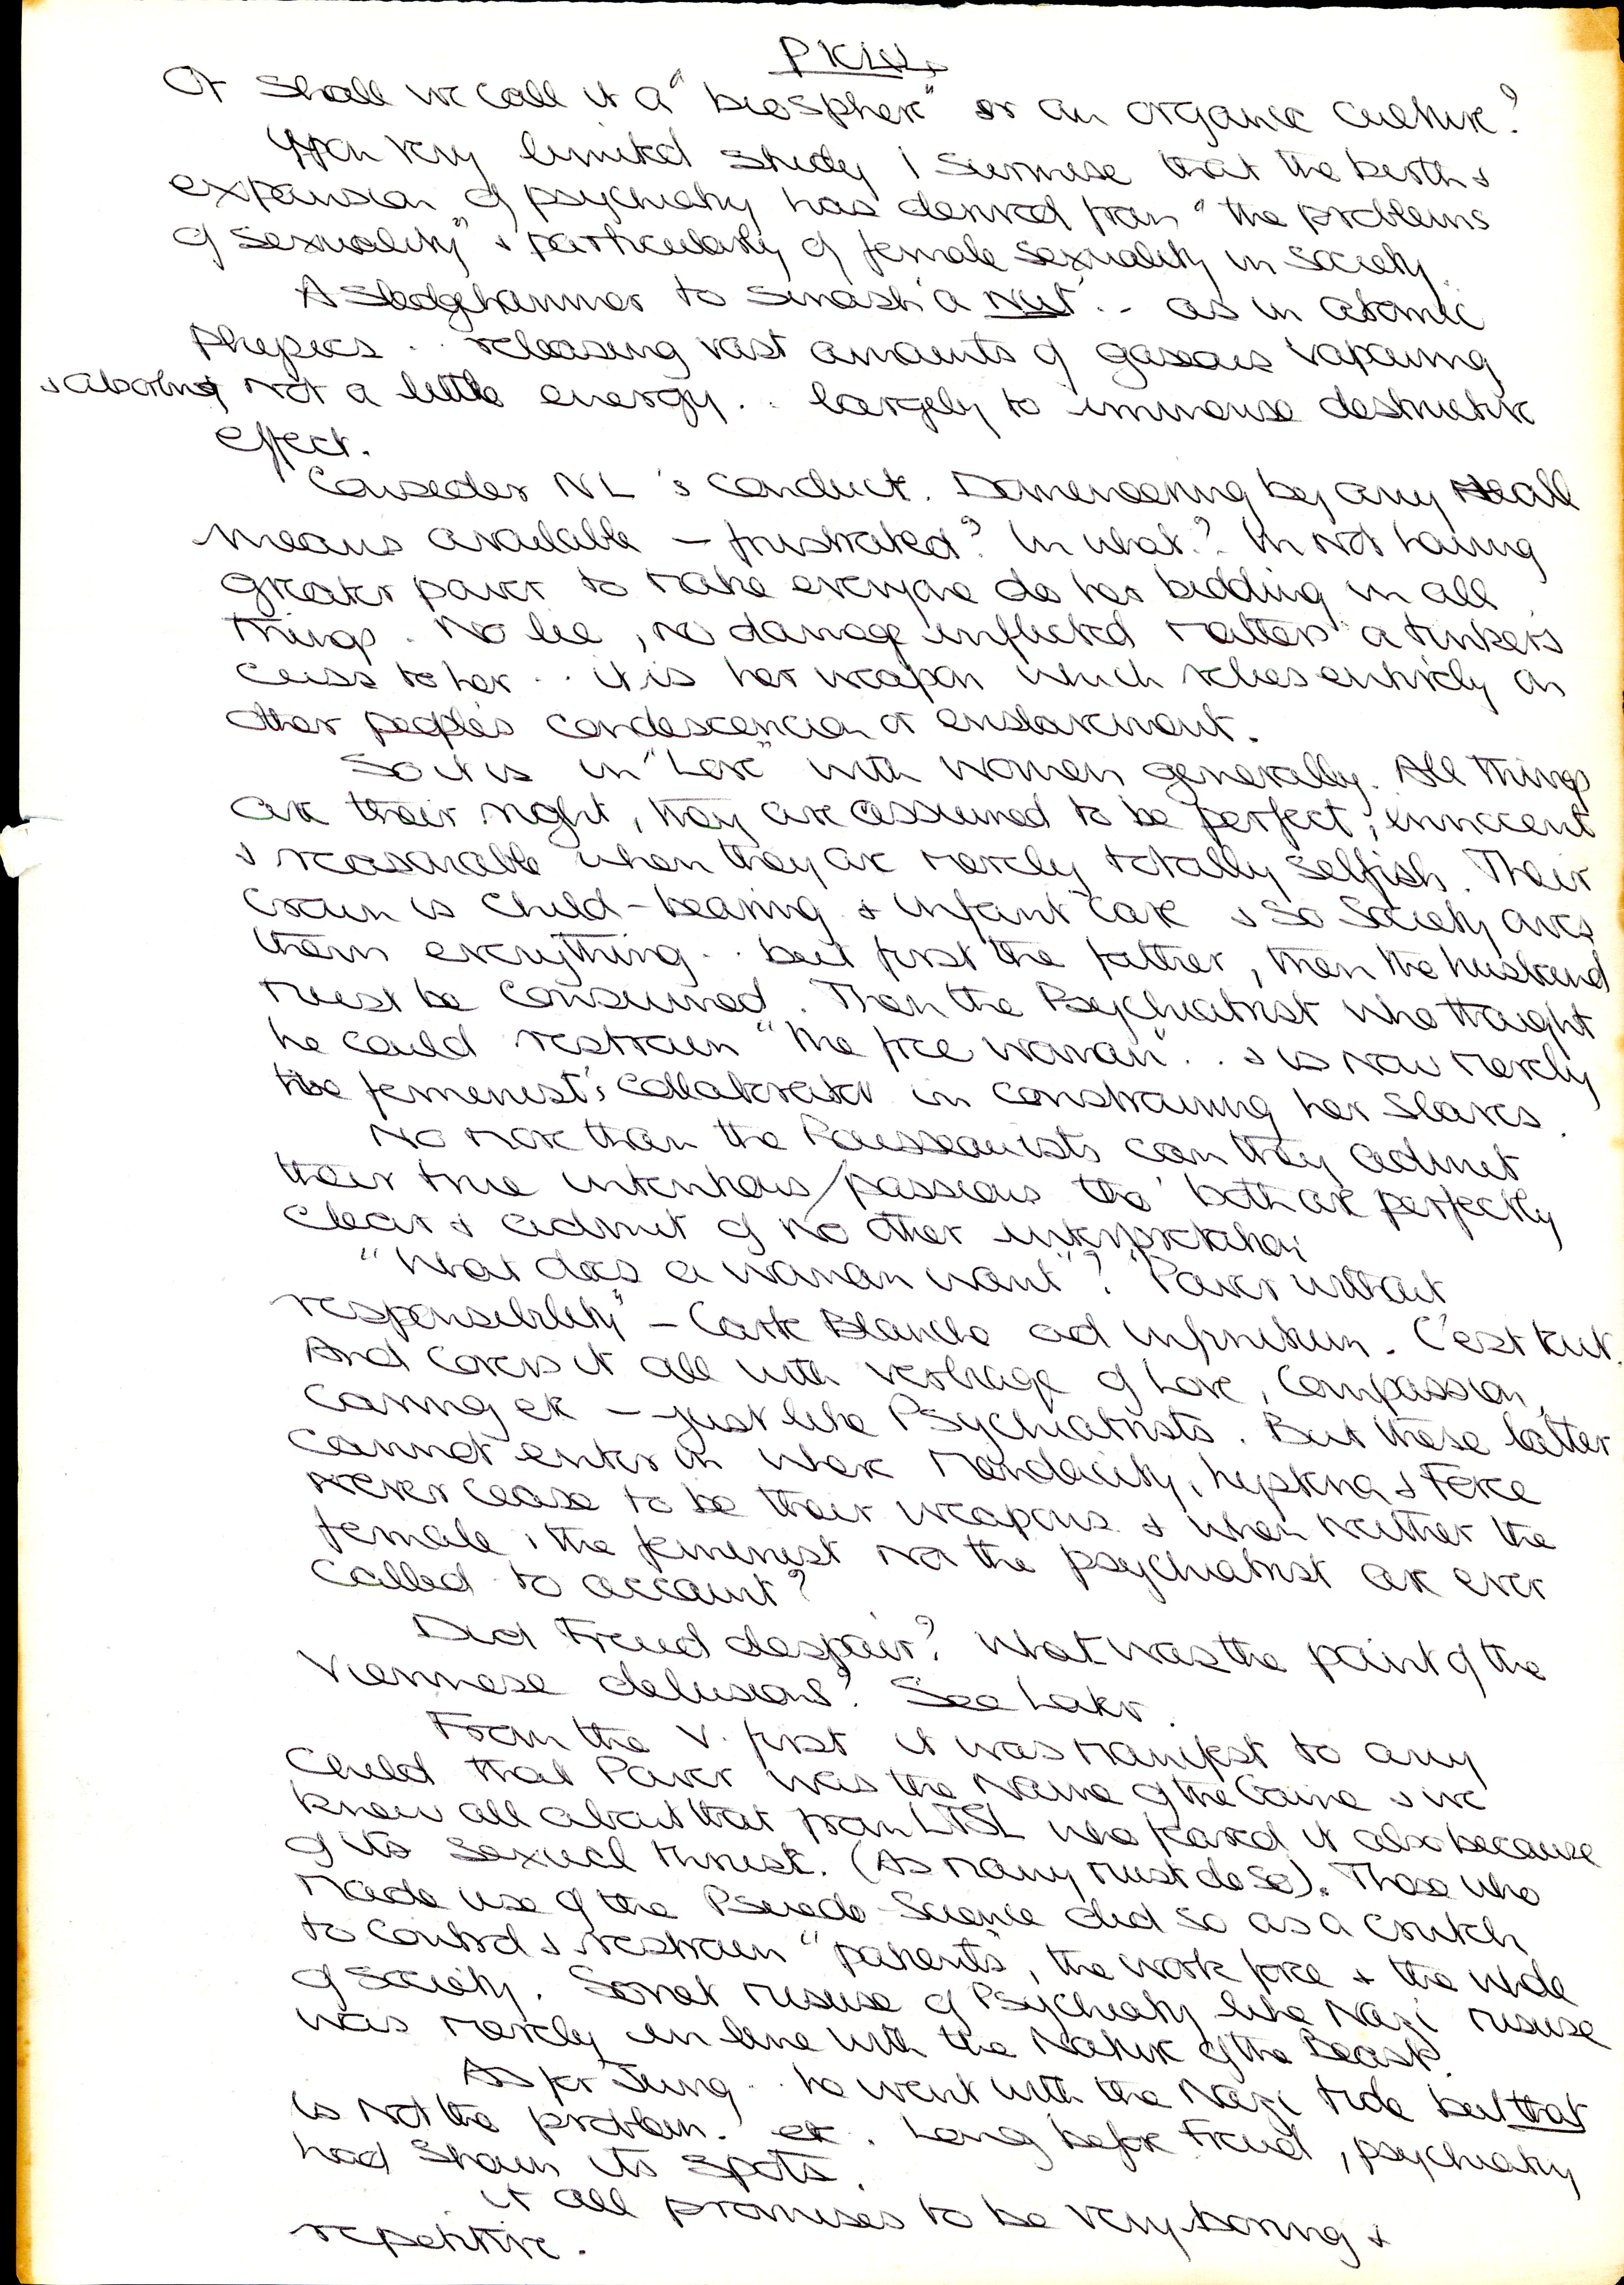 PKIV.
Or Shall we call it a "biosphere" or an organic culture?
Upon very limited study I surmise that the birth &
expansion of psychiatry has derived from "the problems
of sexuality" & particularly of female sexuality in society.
A sledgehammer to smash a Nut .. as in atomic
physics .. releasing vast amounts of gaseous vapouring
& absorbing not a little energy .. largely to immense destructive
effect.
Consider NL's conduct. Domineering by any & all
means available – frustrated? In what? In not having
greater power to make everyone do her bidding in all
things. No lie, no damage inflicted matters a tinker's
cuss to her .. it is her weapon which relies entirely on
other people's condescencion or enslavement.
So it is in "Love" with women generally. All things
are their right, they are assumed to be perfect, innocent
& reasonable when they are merely totally selfish. Their
crown is child-bearing & infant care & so Society owes
them everything .. but first the father, then the husband
must be consumed. Then the Psychiatrist who thought
he could restrain "the free woman" .. & is now merely
the femenist's collaborator in constraining her slaves.
No more than the Rousseauists can they admit
their true intentions/passions tho' both are perfectly
clear & admit of no other interpretation
"What does a woman want"? "Power without
responsibility" – Carte Blanche ad infinitum. C'est tout.
And covers it all with verbiage of Love, Compassion,
Caring etc – just like Psychiatrists. But these latter
cannot enter in where mendacity, hysteria & Force
never cease to be their weapons & when neither the
female, the feminist nor the psychiatrist are ever
called to account?
Did Freud despair? What was the point of the
Viennese delusions? See Later.
From the v. first it was manifest to any
Child that Power was the Name of the Game & we
knew all about that from LTSL who feared it also because
of its sexual thrust. (As many must do so). Those who
made use of the Pseudo-Science did so as a crutch
to control & restrain "patients", the work force & the whole
of society. Soviet misuse of Psychiatry like Nazi misuse
was merely in line with the Nature of the Beast.
As for Jung .. he went with the Nazi tide but that
is not the problem. etc. Long before Freud, psychiatry
had shown its spots.
It all promises to be very boring &
repetitive.